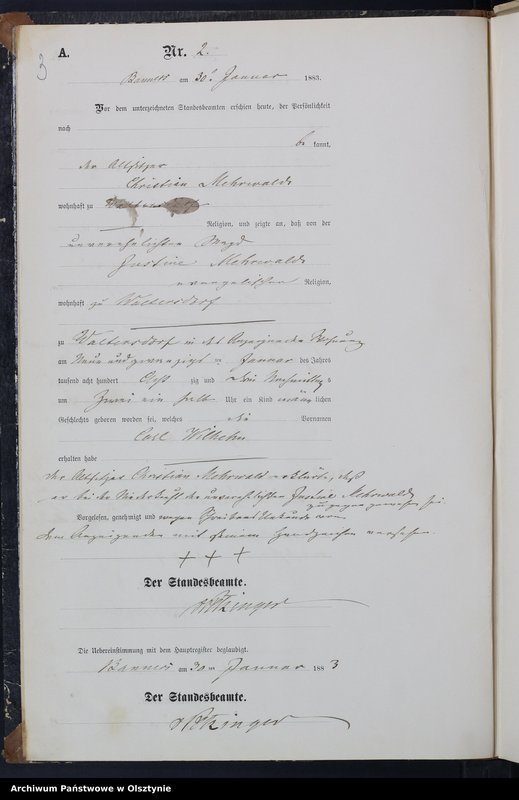 3
A. Nr. 2.
Banners am 30t Januar 1883.
Vor dem unterzeichneten Standesbeamten erschien heute, der Persönlichkeit
nach
be kannt,
der Altsitzer
Christian Mehrwald
wohnhaft zu
Religion, und zeigte an, daß von der
unverehelichten Magd
Justine Mehrwald
evangelischer Religion,
wohnhaft zu Waltersdorf
zu Waltersdorf in des Anzeigenden Wohnung
am Neun und zwanzigst en Januar des Jahres
tausend acht hundert Acht zig und drei Nachmittag s
um zwei ein halb Uhr ein Kind männ lichen
Geschlechts geboren worden sei, welches die Vornamen
Carl Wilhelm
erhalten habe
Der Altsitzer Christian Mehrwald erklärte, daß
er bei der Niederkunft der unverehelichten Justine Mehrwald
zugegen gewesen sei.
Vorgelesen, genehmigt und wegen Schreibensunkunde vom
dem Anzeigenden mit seinem Handzeichen versehen.
+ + +
Der Standesbeamte.
Die Uebereinstimmung mit dem Hauptregister beglaubigt.
Banners am 30ten Januar 1883
Der Standesbeamte.
Archiwum Państwowe w Olsztynie